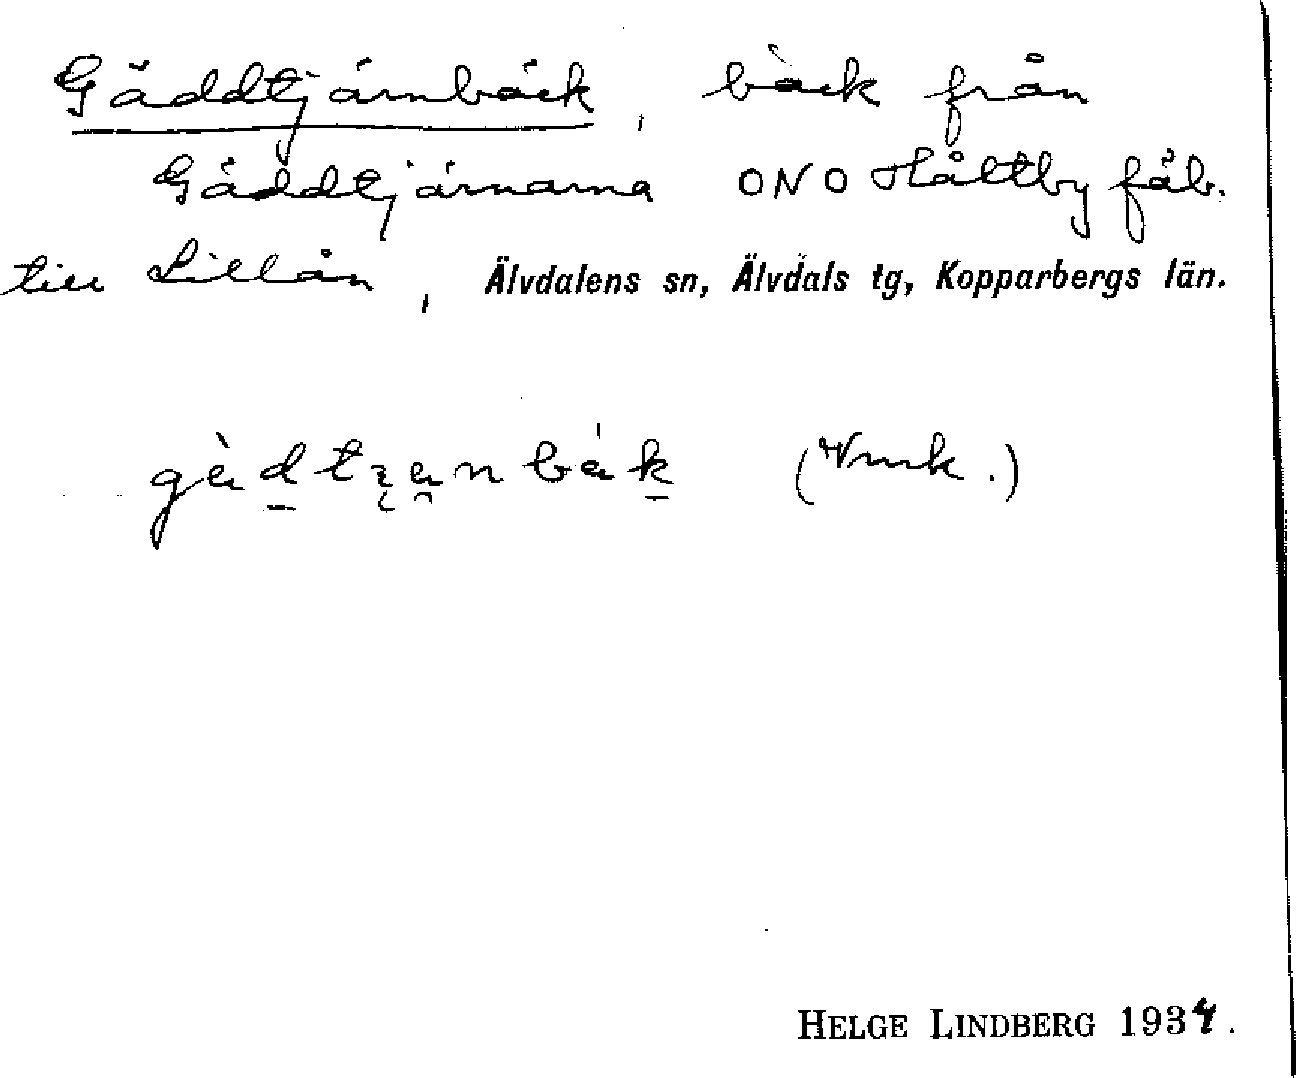 Gäddtjärnbäck, bäck från
Gäddtjärnarna ONO Håltby fäb.
till Lillån, Älvdalens sn, Älvdals tg, Kopparbergs län.
HELGE LINDBERG 1934.